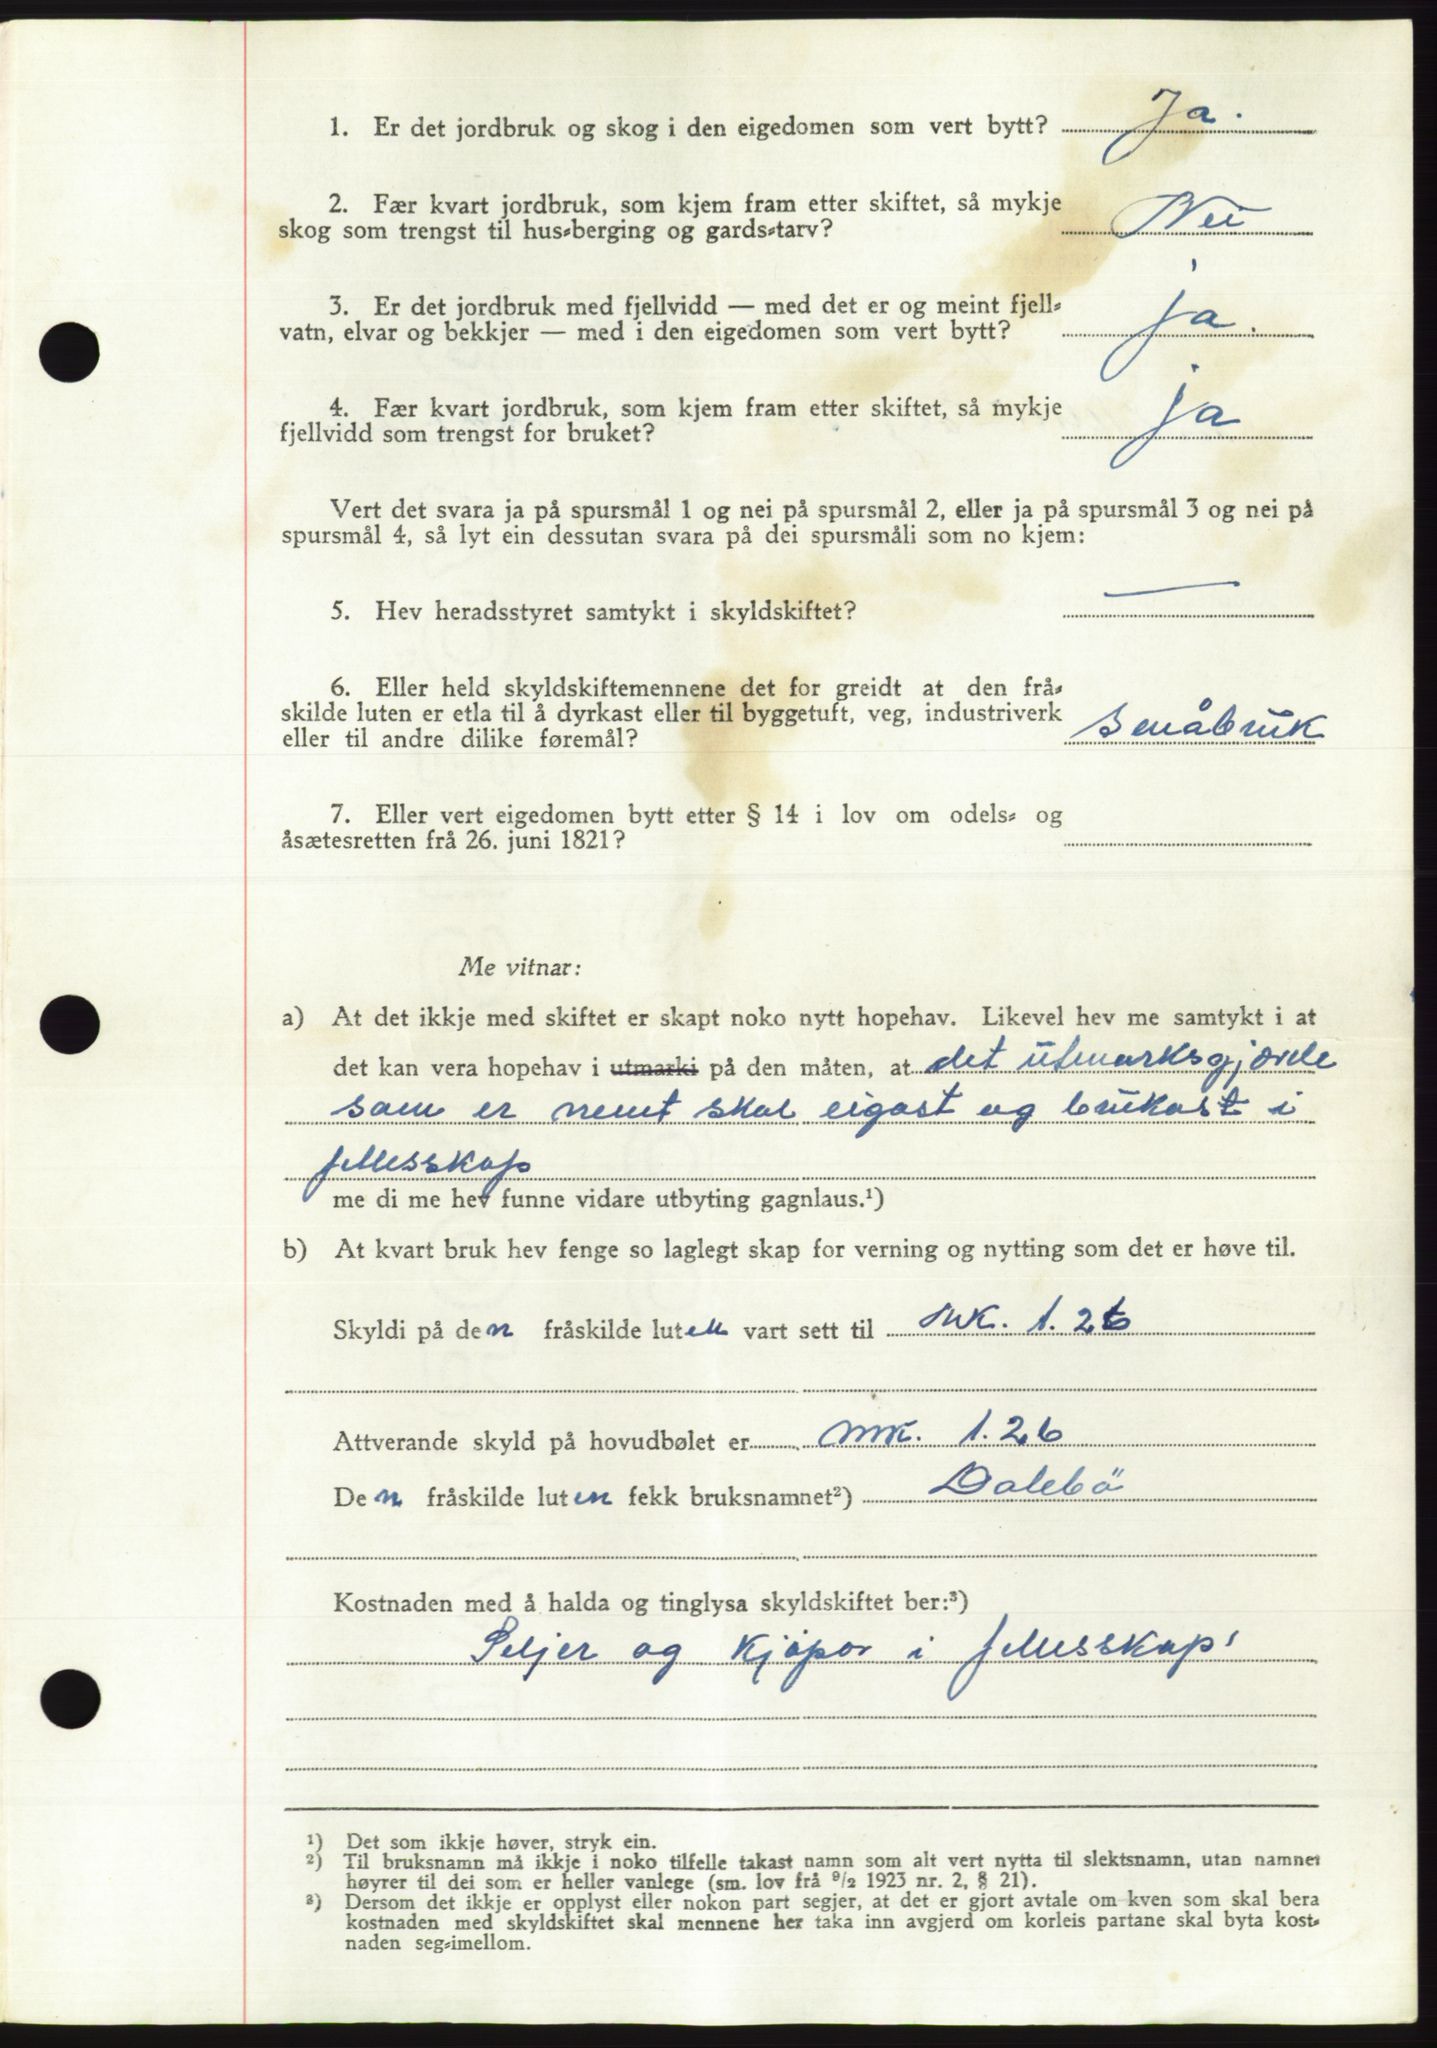 1. Er det jordbruk og skog i den eigedomen som vert bytt? Ja.
2. Fær kvart jordbruk, som kjem fram etter skiftet, så mykje
skog som trengst til hus-berging og gards-tarv? Nei
3. Er det jordbruk med fjellvidd — med det er og meint fjell-
vatn, elvar og bekkjer — med i den eigedomen som vert bytt? ja.
4. Fær kvart jordbruk, som kjem fram etter skiftet, så mykje
fjellvidd som trengst for bruket? ja
Vert det svara ja på spursmål 1 og nei på spursmål 2, eller ja på spursmål 3 og nei på
spursmål 4, så lyt ein dessutan svara på dei spursmåli som no kjem:
5. Hev heradsstyret samtykt i skyldskiftet? —
6. Eller held skyldskiftemennene det for greidt at den frå-
skilde luten er etla til å dyrkast eller til byggetuft, veg, industriverk
eller til andre dilike føremål? Småbruk
7. Eller vert eigedomen bytt etter § 14 i lov om odels- og
åsætesretten frå 26. juni 1821?
Me vitnar:
a) At det ikkje med skiftet er skapt noko nytt hopehav. Likevel hev me samtykt i at
det kan vera hopehav i utmarki på den måten, at det utmarksgjærde
som er nemt skal eigast og brukast i
fellesskap
me di me hev funne vidare utbyting gagnlaus.¹)
b) At kvart bruk hev fenge so laglegt skap for verning og nytting som det er høve til.
Skyldi på den fråskilde luten vart sett til mk. 1.26
Attverande skyld på hovudbølet er mk. 1.26
Den fråskilde luten fekk bruksnamnet²) Dalebö
Kostnaden med å halda og tinglysa skyldskiftet ber:³)
Seljer og kjöpar i fellesskap.
¹) Det som ikkje høver, stryk ein.
²) Til bruksnamn må ikkje i noko tilfelle takast namn som alt vert nytta til slektsnamn, utan namnet
høyrer til dei som er heller vanlege (sm. lov frå 9/2 1923 nr. 2, § 21).
³) Dersom det ikkje er opplyst eller nokon part segjer, at det er gjort avtale om kven som skal bera
kostnaden med skyldskiftet skal mennene her taka inn avgjerd om korleis partane skal byta kost-
naden seg-imellom.